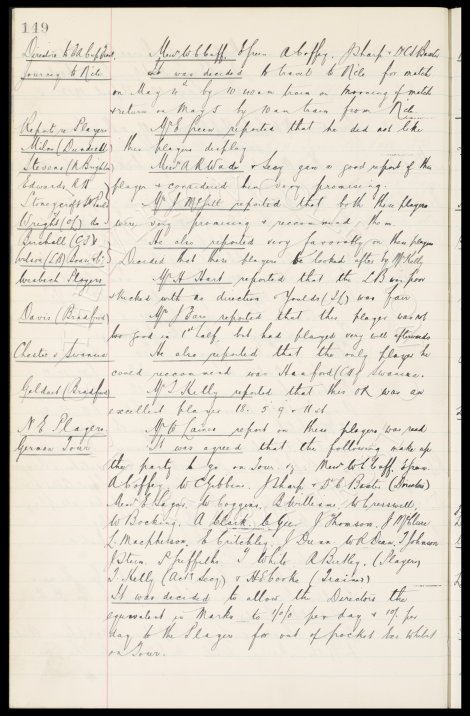 149
Directors to
Journey to Kiel
Messrs W C Cuff, E Green A Coffey, J Sharp & Dr C S Baxter
it was decided to travel to Kiel for match
on May 4th by 10 train on morning of match
& return on May 5 by 10 am train from Kiel
Report re Players
Milne (Dundee)
Mr E Green reported that he did not like
this players display
Stevens (
Messrs A R Wade & Secy gave a good report of this
player & considered him very promising.
Edwards, R N
Mr reported that both these players
were very promising & recommend them
Wright (of) do
Birchall (
He also reported very favorably on these players
Wilson (LB)
Decided that these players be looked after by Mr Kelly
Wisbech Players
Mr H Hart reported that the L B was poor
& kicked with no direction Youlds (IL) was fair
Davis (Bradford)
Mr J Fare reported that this player was not
too good in 1st half but had played very well afterwards
Chester v Swansea
He also reported that the only player he
could recommend was Hanford (CH) Swansea.
Geldard (Bradford)
Mr T Kelly reported that this OR was an
excellent player 18. 5 9 & 11 st
N E Players
Mr report on these players was read
German Tour
It was agreed that the following make up
the party to go on tour. of Messrs W C Cuff, E Green
A Coffey, W C Gibbins, J Sharp & Dr C Baxter (Directors)
Messrs E Sagar, W Coggins, B Williams W Cresswell
W Bocking, A Clark, C Gee J Thomson, J McClure
L Macpherson, E Critchley, J Dunn W R Dean, T Johnson
J Stein, P Griffiths T White A Rigby, (Players)
T Kelly (Act. Secy) & H E Cooke (Trainer)
It was decided to allow the Directors the
equivalent in Marks to per day & 10/- per
day to the Players for out of pocket exs whilst
on Tour.